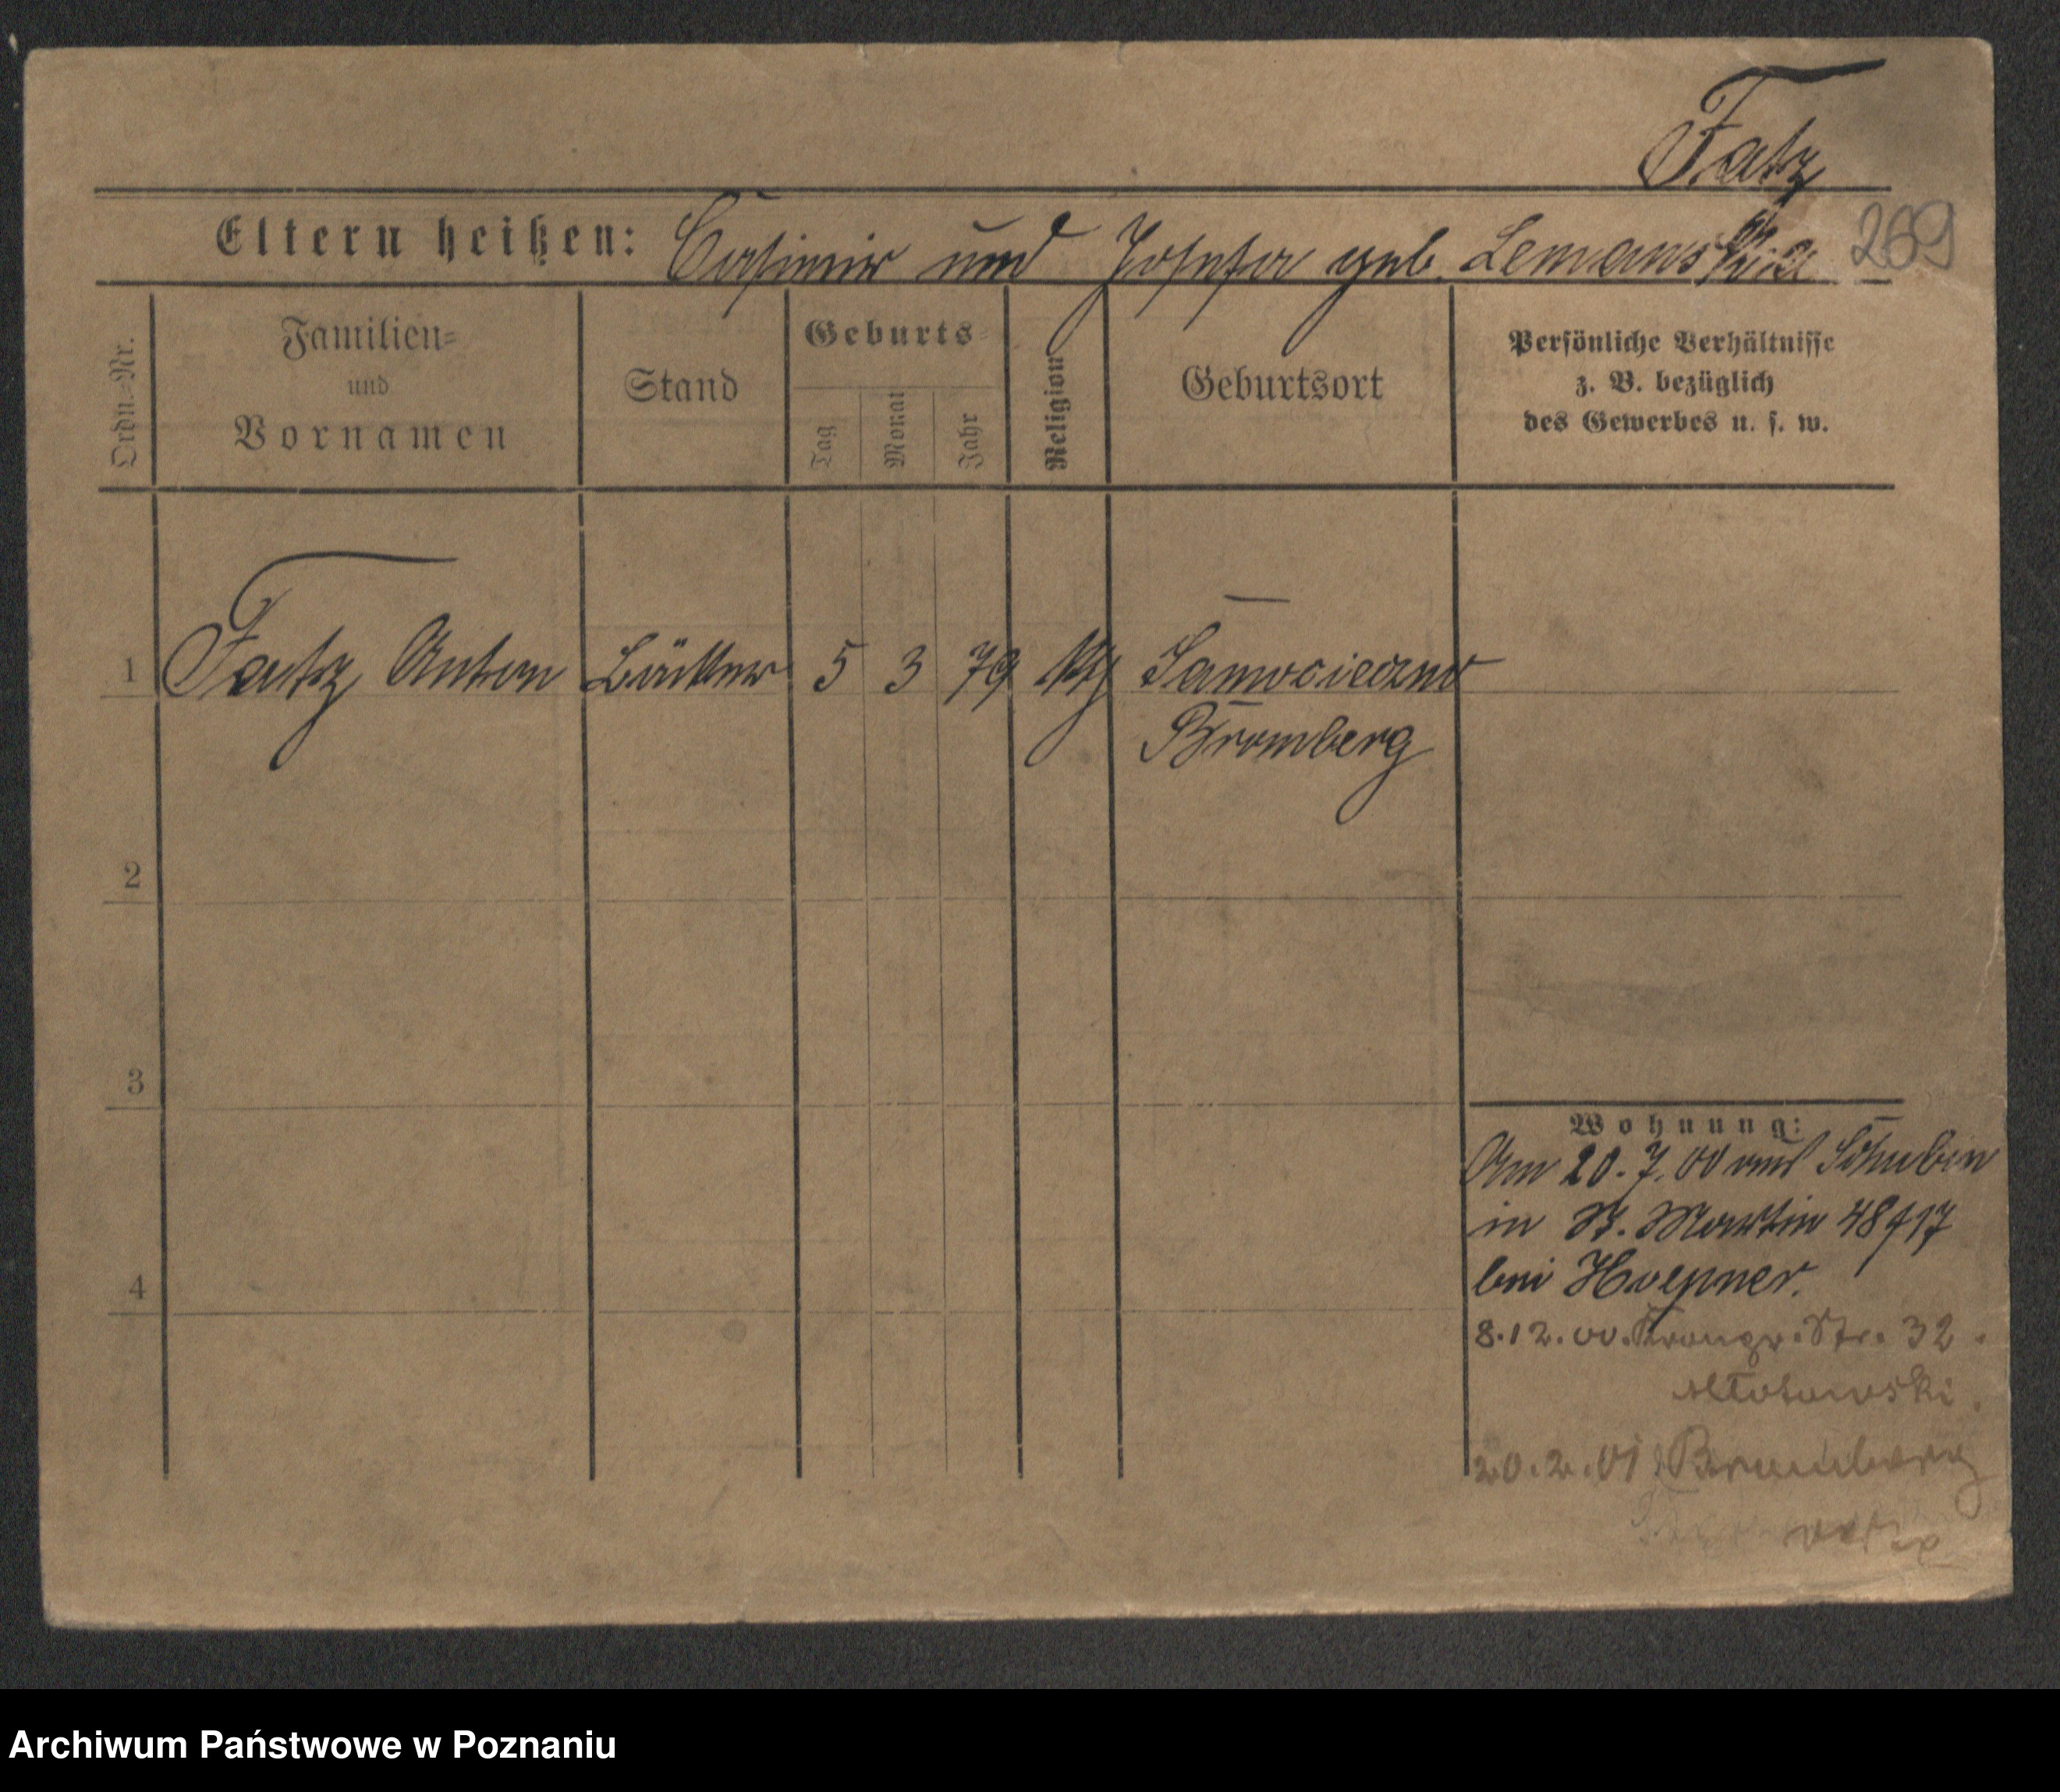 Fatz
Eltern heißen: Casimir und Josefa geb. Lemanski
269
Ordn.-Nr.
Familien-
und
Vornamen
Stand
Geburts-
Tag
Monat
Jahr
Religion
Geburtsort
Persönliche Verhältnisse
z. B. bezüglich
des Gewerbes u. s. w.
1 Fatz Anton 5 3 79 kth
Bromberg
2
3
4
Wohnung:
Am 20.7.00 aus Schubin
in St. Martin 48
bei Hoepner.
8.12.00. Kronpr. Str. 32.
20.2.01 Bromberg
Archiwum Państwowe w Poznaniu